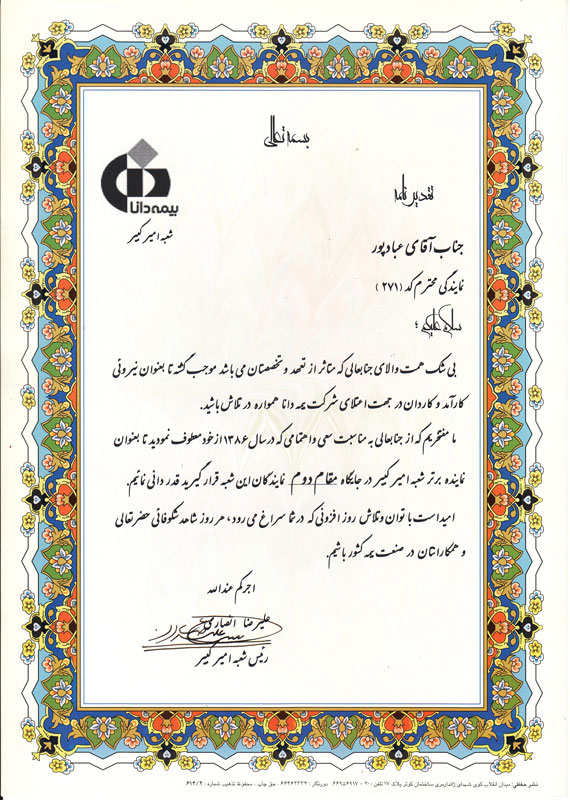 بسمه تعالی
بیمه دانا
شعبه امیر کبیر
تقدیر نامه
جناب آقای عبادپور
نمایندگی محترم کد (۲۷۱)
سلام علیکم ؛
بی شک همت والای جنابعالی که متاثر از تعهد و تخصصتان می باشد موجب گشته تا بعنوان نیروئی
کارآمد و کاردان در جهت اعتلای شرکت بیمه دانا همواره در تلاش باشید.
ما مفتخریم که از جنابعالی به مناسبت سعی و اهتمامی که در سال ۱۳۸۶ از خود معطوف نمودید تا بعنوان
نماینده برتر شعبه امیر کبیر در جایگاه مقام دوم نمایندگان این شعبه قرار گیرید قدردانی نمائیم.
امید است با توان و تلاش روز افزونی که در شما سراغ می رود، هر روز شاهد شکوفائی حضرتعالی
و همکارانتان در صنعت بیمه کشور باشیم.
اجرکم عندالله
علیرضا انصاری
رئیس شعبه امیر کبیر
نشر حفظی: میدان انقلاب کوی شهدای ژاندارمری ساختمان کوثر پلاک ۱۷ تلفن : ۲۰ - ۶۶۹۵۶۹۱۷ دورنگار : ۶۶۴۶۲۲۳۳ - حق چاپ - محفوظ تذهیب شماره : ۶۱۴/۲